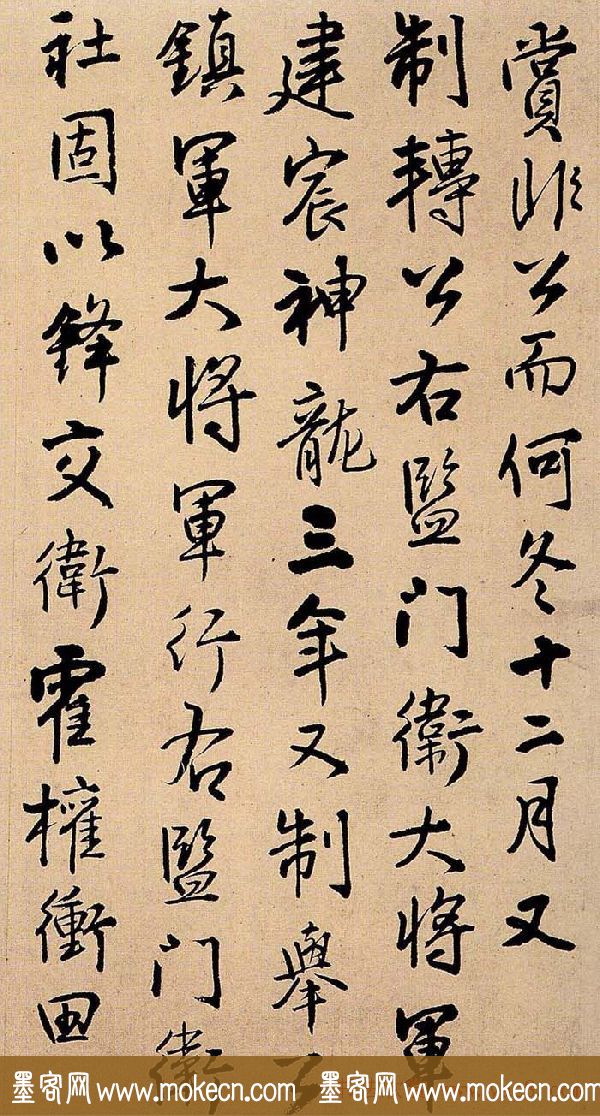 賞非公而何冬十二月又
制轉公右監門衛大將軍
建宸神龍三年又制舉公
鎮軍大將軍行右監門衛
社固以鋒交衛霍權衝田
墨客网 www.mokecn.com 墨客网 www.mokecn.com